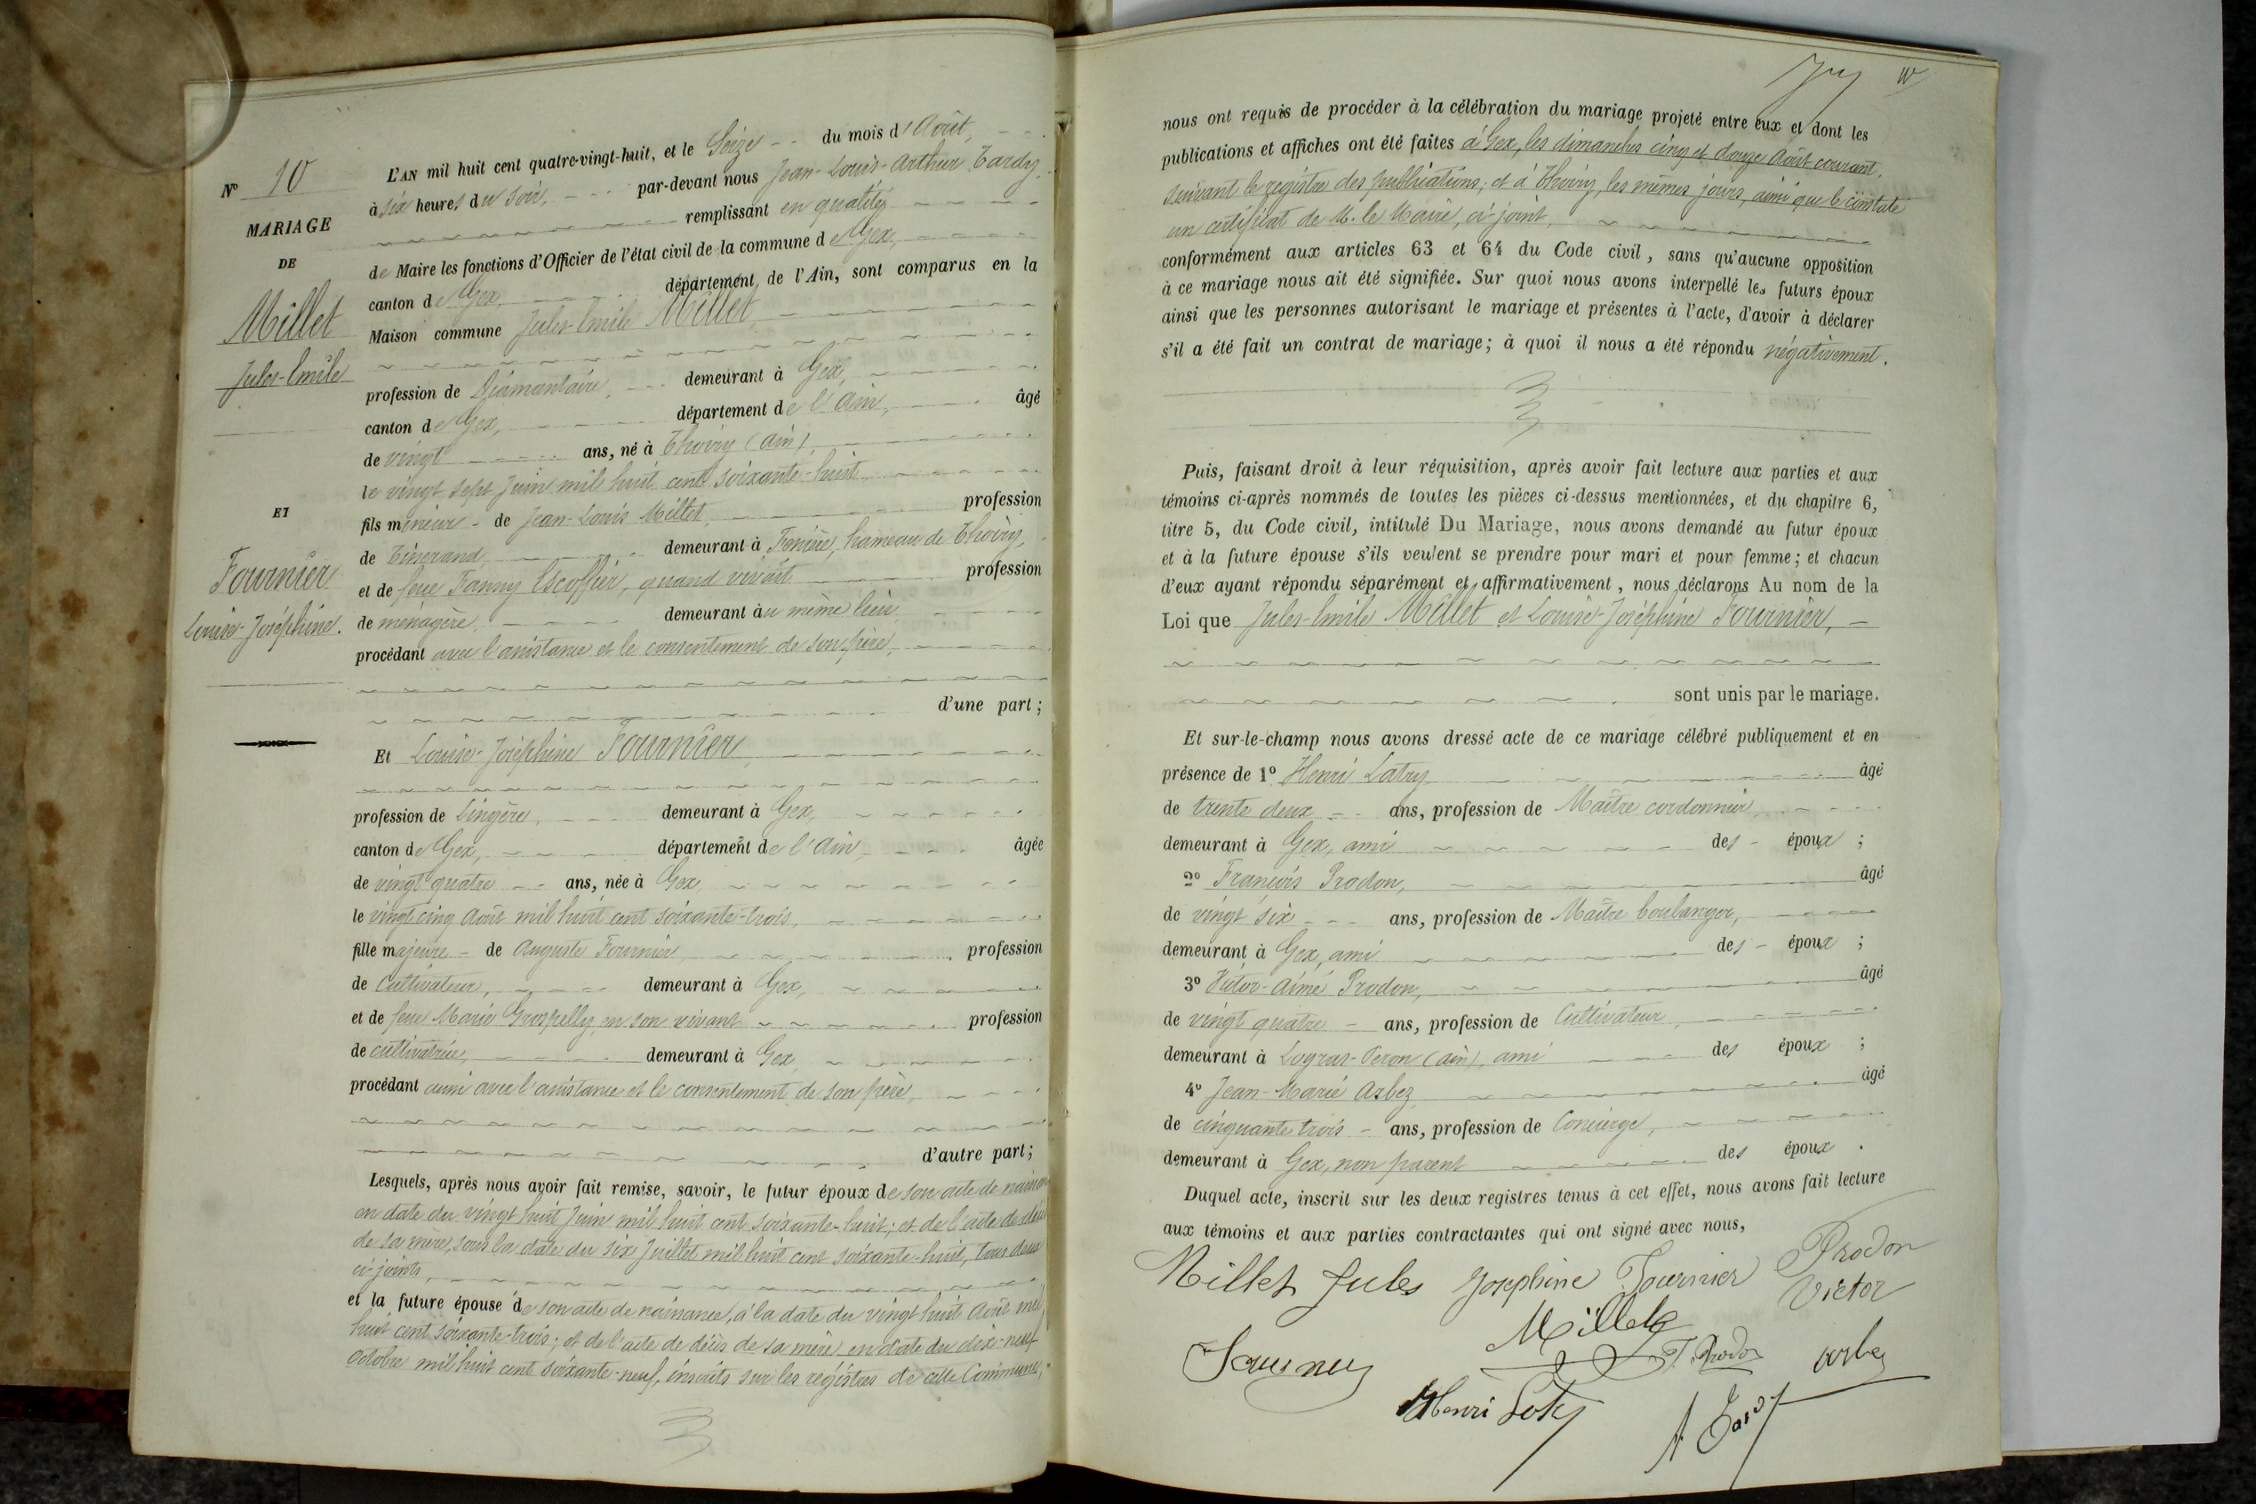 Nº 10
MARIAGE
DE
Millet
Jules-Emile
ET
Fournier
Louise-Joséphine.
L'AN mil huit cent quatre-vingt-huit, et le Seize du mois d'Août,
à six heures du soir, par-devant nous Jean-Louis-Arthur Tardy
remplissant en qualité
de Maire les fonctions d'Officier de l'état civil de la commune de Gex,
canton de Gex, département de l'Ain, sont comparus en la
Maison commune Jules-Emile Millet,
profession de Diamantaire, demeurant à Gex,
canton de Gex, département de l'Ain, âgé
de vingt ans, né à Thoiry (Ain),
le vingt sept Juin mil huit cent soixante-huit
fils mineur de Jean-Louis Millet, profession
de Tisserand, demeurant à Fenière, hameau de Thoiry,
et de feue Fanny Escoffier, quand vivait profession
de ménagère, demeurant au même lieu
procédant avec l'assistance et le consentement de son père,
d'une part ;
Et Louise-Joséphine Fournier,
profession de Lingère, demeurant à Gex,
canton de Gex, département de l'Ain, âgée
de vingt quatre ans, née à Gex,
le vingt cinq Août mil huit cent soixante-trois,
fille majeure de Auguste Fournier profession
de Cultivateur, demeurant à Gex,
et de feue Marie Grospelly, en son vivant profession
de cultivatrice, demeurant à Gex,
procédant aussi avec l'assistance et le consentement de son père,
d'autre part ;
Lesquels, après nous avoir fait remise, savoir, le futur époux de son acte de naissance
en date du vingt huit Juin mil huit cent soixante-huit ; et de l'acte de décès
de sa mère, sous la date du six Juillet mil huit cent soixante-huit, tous deux
ci-joints,
et la future épouse de son acte de naissance, à la date du vingt huit Août mil
huit cent soixante-trois ; et de l'acte de décès de sa mère, en date du dix-neuf
Octobre mil huit cent soixante-neuf, inscrits sur les régistres de cette Commune ;
nous ont requis de procéder à la célébration du mariage projeté entre eux et dont les
publications et affiches ont été faites à Gex, les dimanches cinq et douze Août courant,
suivant le registre des publications ; et à Thoiry, les mêmes jours, ainsi que le constate
un certificat de M. le Maire, ci-joint,
conformément aux articles 63 et 64 du Code civil, sans qu'aucune opposition
à ce mariage nous ait été signifiée. Sur quoi nous avons interpellé les futurs époux
ainsi que les personnes autorisant le mariage et présentes à l'acte, d'avoir à déclarer
s'il a été fait un contrat de mariage ; à quoi il nous a été répondu négativement.
Puis, faisant droit à leur réquisition, après avoir fait lecture aux parties et aux
témoins ci-après nommés de toutes les pièces ci-dessus mentionnées, et du chapitre 6,
titre 5, du Code civil, intitulé Du Mariage, nous avons demandé au futur époux
et à la future épouse s'ils veulent se prendre pour mari et pour femme ; et chacun
d'eux ayant répondu séparément et affirmativement, nous déclarons Au nom de la
Loi que Jules-Emile Millet et Louise-Joséphine Fournier,
sont unis par le mariage.
Et sur-le-champ nous avons dressé acte de ce mariage célébré publiquement et en
présence de 1º Henri Latry âgé
de trente deux ans, profession de Maître cordonnier,
demeurant à Gex, ami des époux ;
2º François Prodon, âgé
de vingt six ans, profession de Maître boulanger,
demeurant à Gex, ami des époux ;
3º Victor-Aimé Prodon, âgé
de vingt quatre ans, profession de Cultivateur,
demeurant à Logras-Peron (Ain), ami des époux ;
4º Jean-Marie Arbez âgé
de cinquante trois ans, profession de Concierge,
demeurant à Gex, non parent des époux.
Duquel acte, inscrit sur les deux registres tenus à cet effet, nous avons fait lecture
aux témoins et aux parties contractantes qui ont signé avec nous,
Millet Jules Josephine Fournier Prodon
Victor
Millet
F. Prodon arbez
Henri
A. Tardy